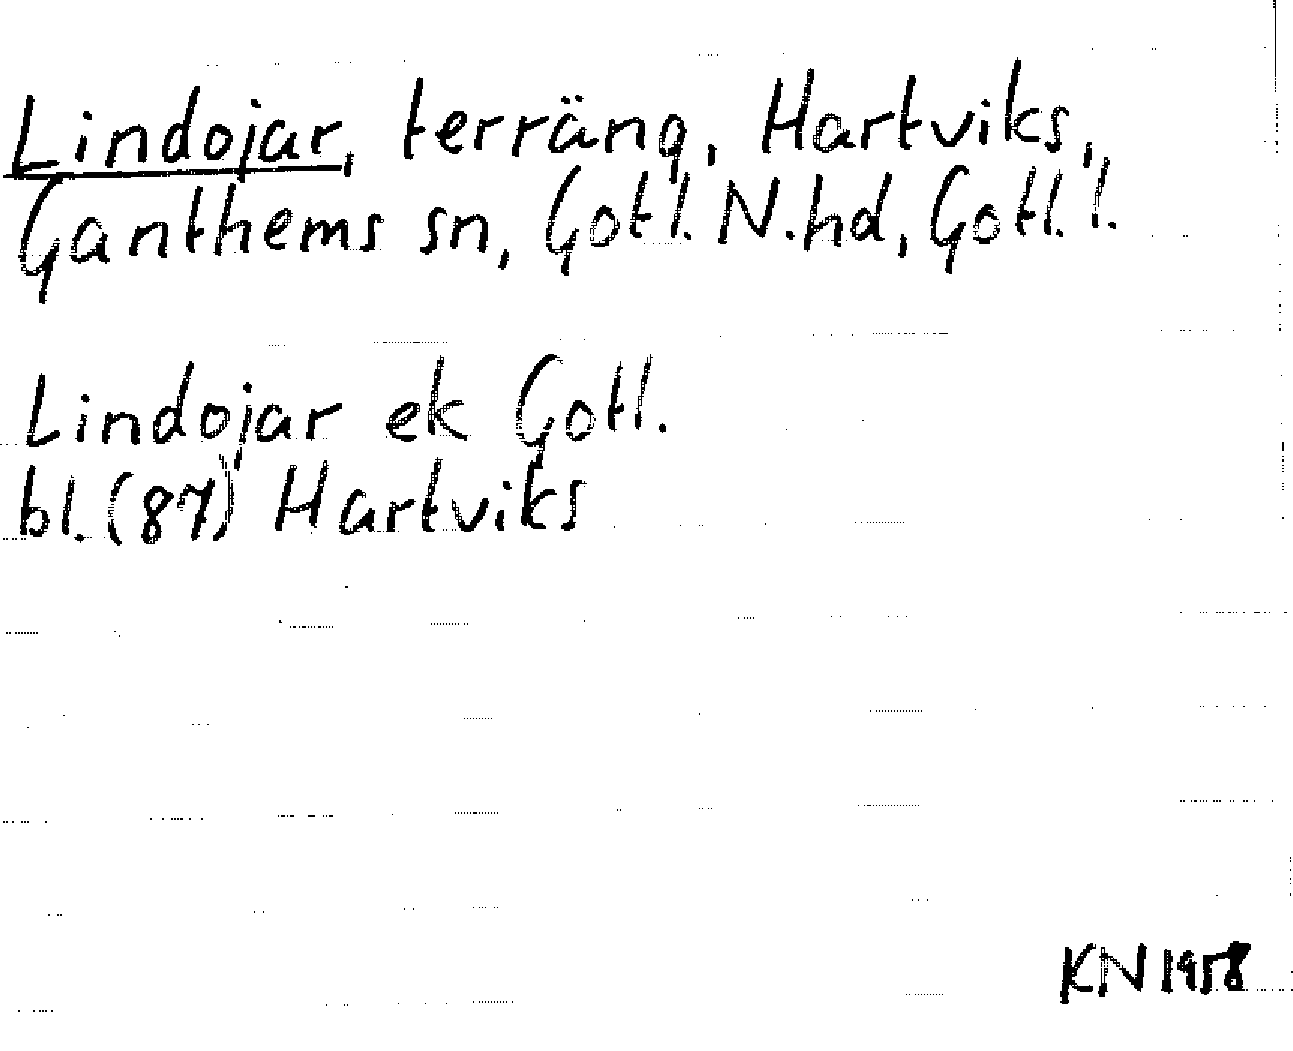 Lindojar, terräng, Hartviks,
Ganthems sn, Gotl. N. hd, Gotl. l.
Lindojar ek Gotl.
bl. (87) Hartviks
KN 1958